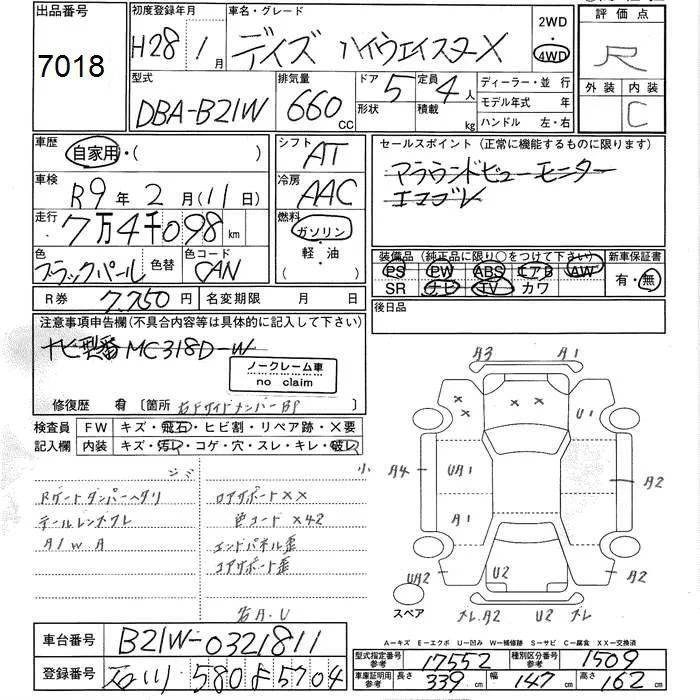 出品番号
7018
初度登録年月
H28年 1月
車名・グレード
デイズ ハイウェイスターX
2WD
4WD
評価点
R
外装 内装
C
型式
DBA-B21W
排気量
660 CC
ドア 形状
5
定員 積載
4人 kg
ディーラー・並行
モデル年式 年
ハンドル 左・右
車歴
自家用・( )
シフト
AT
セールスポイント (正常に機能するものに限ります)
アラウンドビューモニター
エマブレ
車検
R9年 2月(11日)
冷房
AAC
走行
7万4千098km
燃料
ガソリン
・軽・油
( )
色
ブラックパール
色替
色コード
CAN
装備品 (純正品に限り○をつけて下さい)
PS PW ABS エアB AW
SR ナビ TV カワ
新車保証書
有・無
R券 7,750円
名変期限 月 日
後日品
注意事項申告欄(不具合内容等は具体的に記入して下さい)
ナビ型番 MC318D-W
ノークレーム車
no claim
修復歴 有 〔箇所 右Fサイドメンバー BP
検査員
記入欄
FW キズ・飛石・ヒビ割・リペア跡・X要
内装 キズ・汚レ・コゲ・穴・スレ・キレ・破レ
シミ 小
Rゲートダンパーヘタリ
テールレンズワレ
A/W A
コアサポート XX
色コード X42
エンドパネル歪
コアサポート歪
右A.U
A3 A1
X X U1
A4 UA1 A1 A2
UA2 U2 A2
U2
スペア
ワレ.A2 U2 ワレ
A-キズ E-エクボ U-凹み W-補修跡 S-サビ C-腐食 XX-交換済
車台番号
B21W-0321811
登録番号
石川 580 よ 5704
型式指定番号 参考
17552
種別区分番号 参考
1509
車庫証明用 参考
長さ 339cm 幅 147cm 高さ 162cm